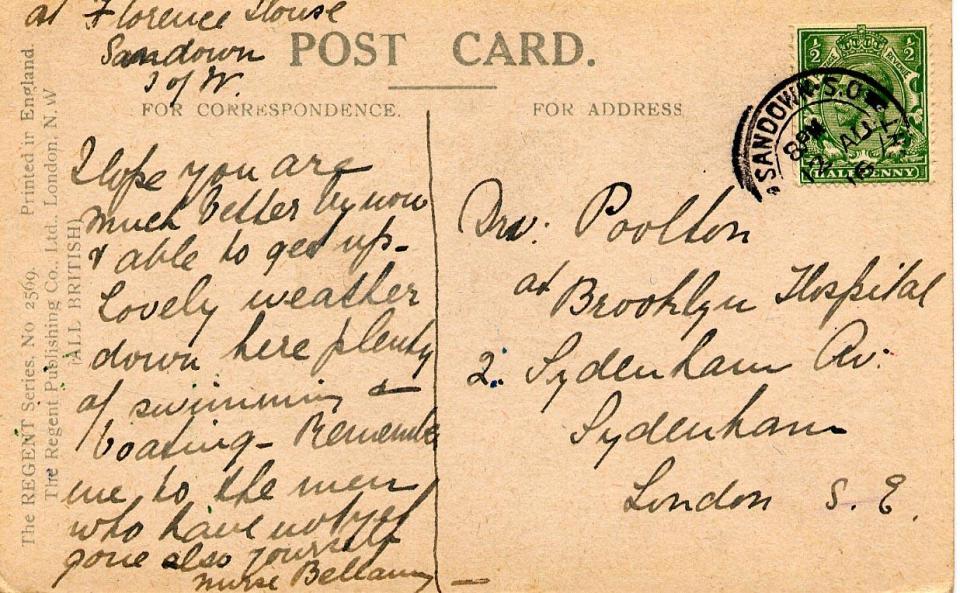 at Florence House
Sandown
I of W.
POST CARD.
FOR CORRESPONDENCE.
FOR ADDRESS
Hope you are
much better by now
& able to get up -
Lovely weather
down here plenty
of swimming &
boating - Remember
me to the men
who have not yet
gone also yourself
nurse Bellamy
Drv. Poolton
at Brooklyn Hospital
2. Sydenham Av.
Sydenham
London S. E.
½ ½
HALFPENNY
SANDOWN S.O.
8 PM
12 AU
16
The REGENT Series, No 2569. Printed in England
The Regent Publishing Co., Ltd., London, N.W
(ALL BRITISH)